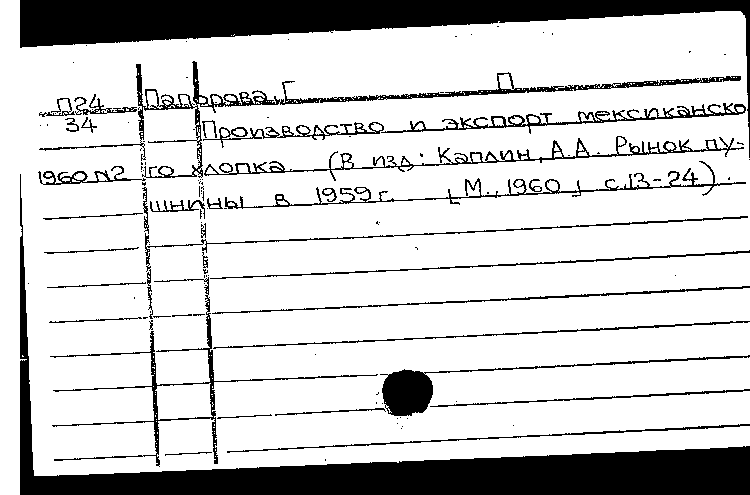 П
П24 Папорова, Г
34 Производство и экспорт мексиканско
1960 N2 го хлопка (В изд: Каплин, А.А. Рынок пу-
шнины в 1959 г. [М., 1960] с.13-24).